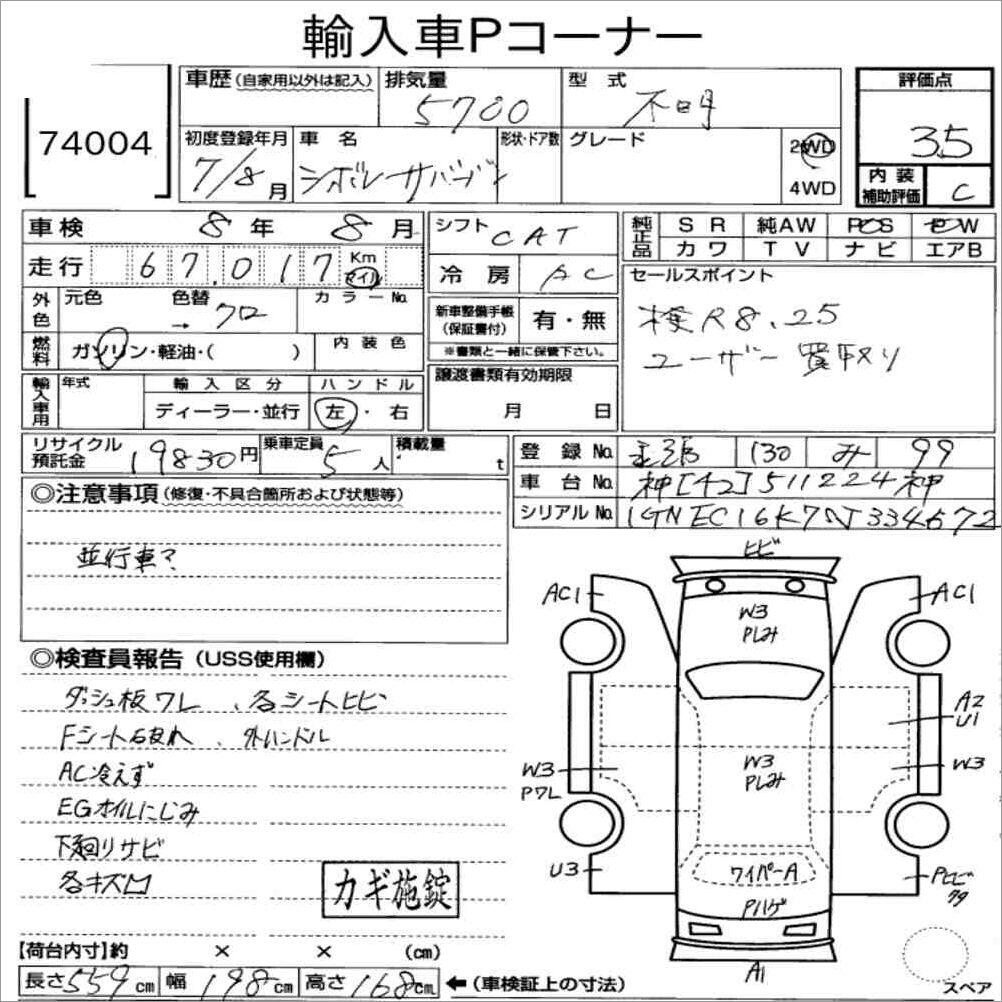 輸入車Pコーナー
74004
車歴(自家用以外は記入) 排気量 5700 型式 不明 評価点 3.5
初度登録年月 7/8月 車名 シボレーサバーバン 形状・ドア数 グレード 2WD 4WD
内装補助評価 C
車検 8年 8月 シフト CAT 純正品 SR 純AW P○S P○W
カワ TV ナビ エアB
走行 67,017 Km マイル 冷房 AC セールスポイント
外色 元色 色替 → クロ カラーNo. 新車整備手帳(保証書付) 有・無
検R8.25
ユーザー買取り
燃料 ガソリン・軽油・( ) 内装色 ※書類と一緒に保管下さい。
輸入車用 年式 輸入区分 ハンドル 譲渡書類有効期限
ディーラー・並行 左・右 月 日
リサイクル預託金 19830円 乗車定員 5人 積載量 t
登録No. 130 み 99
車台No. 神[42]511224神
シリアルNo. 1GNEC16K7
◎注意事項(修復・不具合箇所および状態等)
並行車?
◎検査員報告(USS使用欄)
ダッシュ板ワレ、各シートヒビ
Fシート破れ、外ハンドル
AC冷えず
EGオイルにじみ
下廻りサビ
各キズ凹
カギ施錠
ヒビ
AC1 AC1
W3
Pしみ
A2
U1
W3
Pしみ
W3 W3
Pワレ
U3
ワイパーA
Pハゲ
A1
【荷台内寸】約 × × (cm)
長さ559cm 幅198cm 高さ168cm ←(車検証上の寸法)
スペア